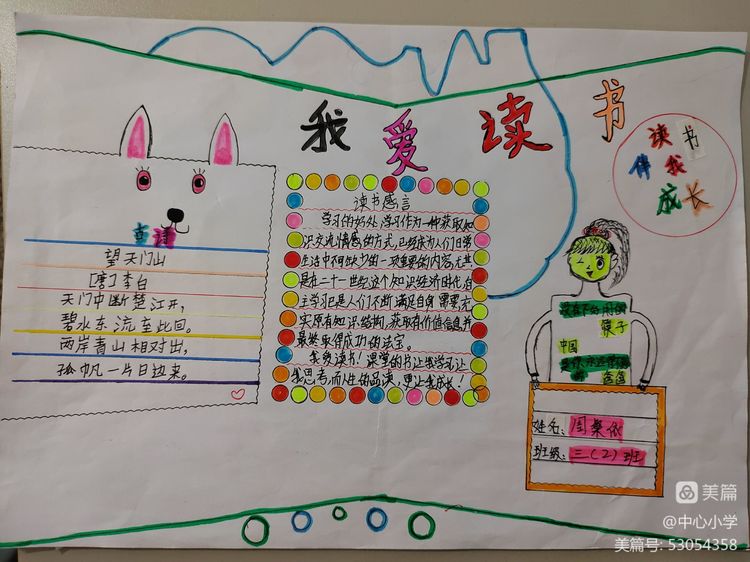 我爱读书
读书
伴我
成长
古诗
望天门山
[唐]李白
天门中断楚江开，
碧水东流至此回。
两岸青山相对出，
孤帆一片日边来。
读书感言
学习的好处，学习作为一种获取知
识交流情感的方式，已经成为人们日常
生活中不可缺少的一项重要的内容，尤其
是在二十一世纪这个知识经济时代，自
主学习已是人们不断满足自身需要、充
实原有知识结构，获取有价值信息，并
最终取得成功的法宝。
我爱读书！课堂的书让我学习，让
我思考，而人生的品读，更让我成长！
筷子
中国
爸爸
姓名：
班级：三（2）班
美篇
@中心小学
美篇号: 53054358